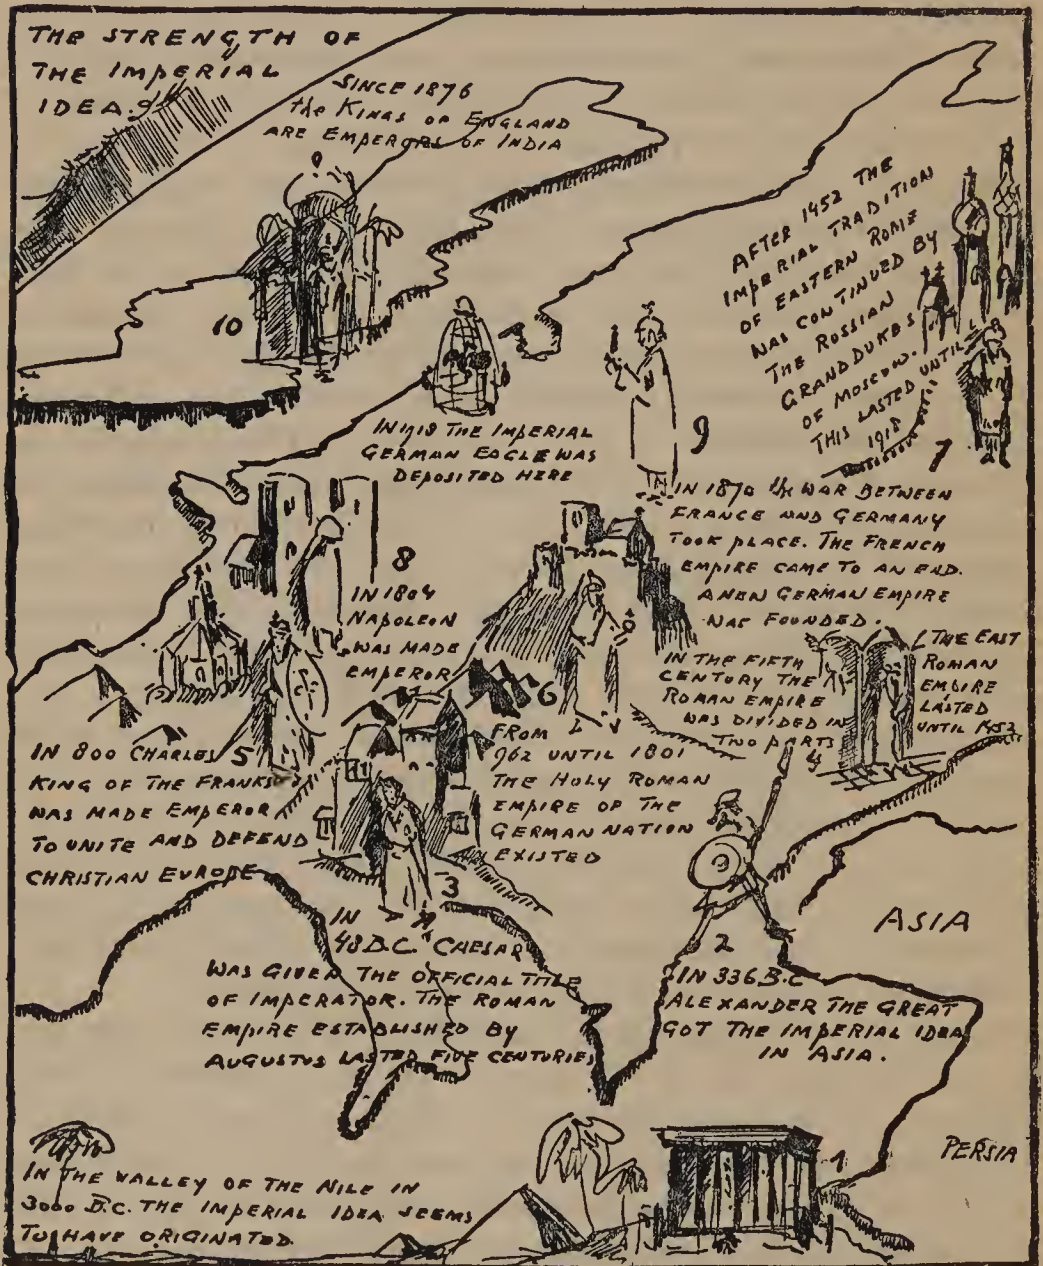 THE STRENGTH OF
THE IMPERIAL
IDEA.
SINCE 1876
the KINGS OF ENGLAND
ARE EMPERORS OF INDIA
10
AFTER 1452 THE
IMPERIAL TRADITION
OF EASTERN ROME
WAS CONTINUED BY
THE RUSSIAN
GRANDDUKES
OF MOSCOW.
THIS LASTED UNTIL
1918
7
IN 1918 THE IMPERIAL
GERMAN EAGLE WAS
DEPOSITED HERE
9
IN 1870 the WAR BETWEEN
FRANCE AND GERMANY
TOOK PLACE. THE FRENCH
EMPIRE CAME TO AN END.
A NEW GERMAN EMPIRE
WAS FOUNDED.
8
IN 1804
NAPOLEON
WAS MADE
EMPEROR
THE EAST
ROMAN
EMBIRE
LASTED
UNTIL 1453
IN THE FIFTH
CENTURY THE
ROMAN EMPIRE
WAS DIVIDED IN
TWO PARTS
4
6
FROM
962 UNTIL 1801
THE HOLY ROMAN
EMPIRE OF THE
GERMAN NATION
EXISTED
5
IN 800 CHARLES
KING OF THE FRANKS
WAS MADE EMPEROR
TO UNITE AND DEFEND
CHRISTIAN EUROPE
3
IN
48 B.C. CAESAR
WAS GIVEN THE OFFICIAL TITLE
OF IMPERATOR. THE ROMAN
EMPIRE ESTABLISHED BY
AUGUSTUS LASTED FIVE CENTURIES
ASIA
2
IN 336 B.C
ALEXANDER THE GREAT
GOT THE IMPERIAL IDEA
IN ASIA.
PERSIA
1
IN THE VALLEY OF THE NILE IN
3000 B.C. THE IMPERIAL IDEA SEEMS
TO HAVE ORIGINATED